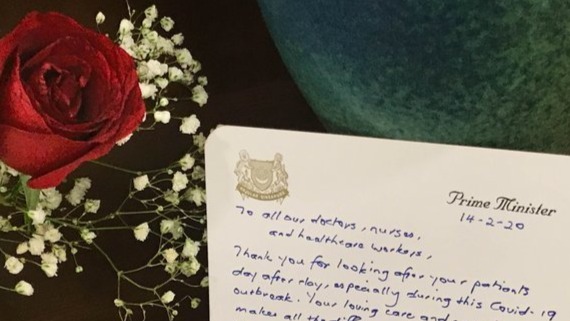 Prime Minister
14-2-20
To all our doctors, nurses,
and healthcare workers,
Thank you for looking after your patients
day after day, especially during this Covid-19
outbreak. Your loving care and
makes all the